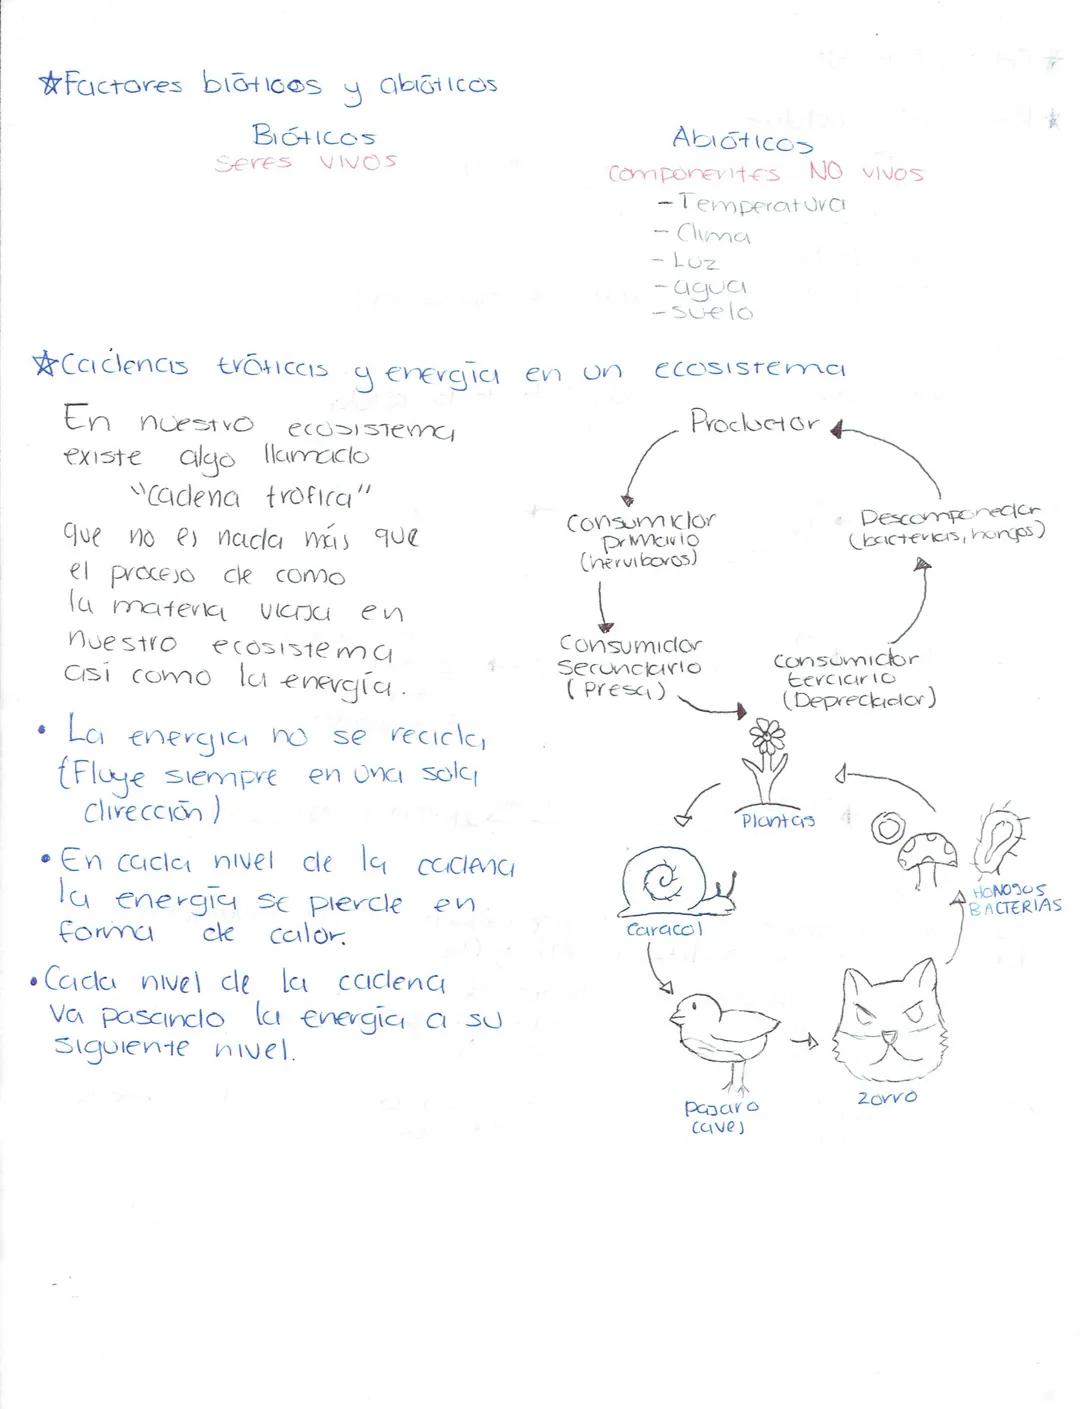 ☆Factores bióticos y abióticos
Bióticos
seres vivos
Abióticos
componentes NO vivos
-Temperatura
- Clima
- Luz
- agua
- suelo
☆Cadenas tróficas y energía en un ecosistema
En nuestro ecosistema
existe algo llamado
"Cadena trofica"
que no es nada más que
el proceso de como
la materia viaja en
nuestro ecosistema
así como la energía.
• La energia no se recicla,
(Fluye siempre en una sola
dirección)
• En cada nivel de la cadena
la energía se pierde en
forma de calor.
• Cada nivel de la cadena
va pasando la energía a su
siguiente nivel.
Productor
Consumidor
primario
(herviboros)
Descomponedor
(bacterias, hongos)
Consumidor
Secundario
(Presa)
consumidor
terciario
(Depredador)
Plantas
HONOJOS
BACTERIAS
Caracol
Zorro
Pajaro
(ave)